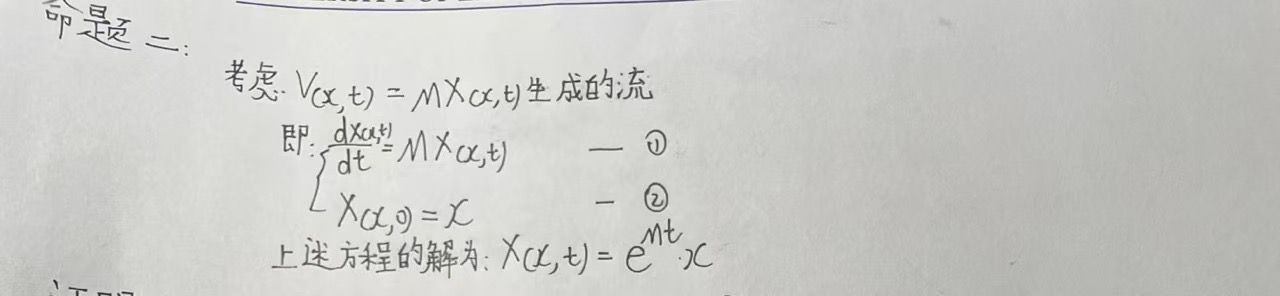 命题二:
考虑. V(x,t) = MX(x,t)生成的流
即: dX(x,t)/dt = MX(x,t) — ①
X(x,0) = x — ②
上述方程的解为: X(x,t) = e^{Mt}·x